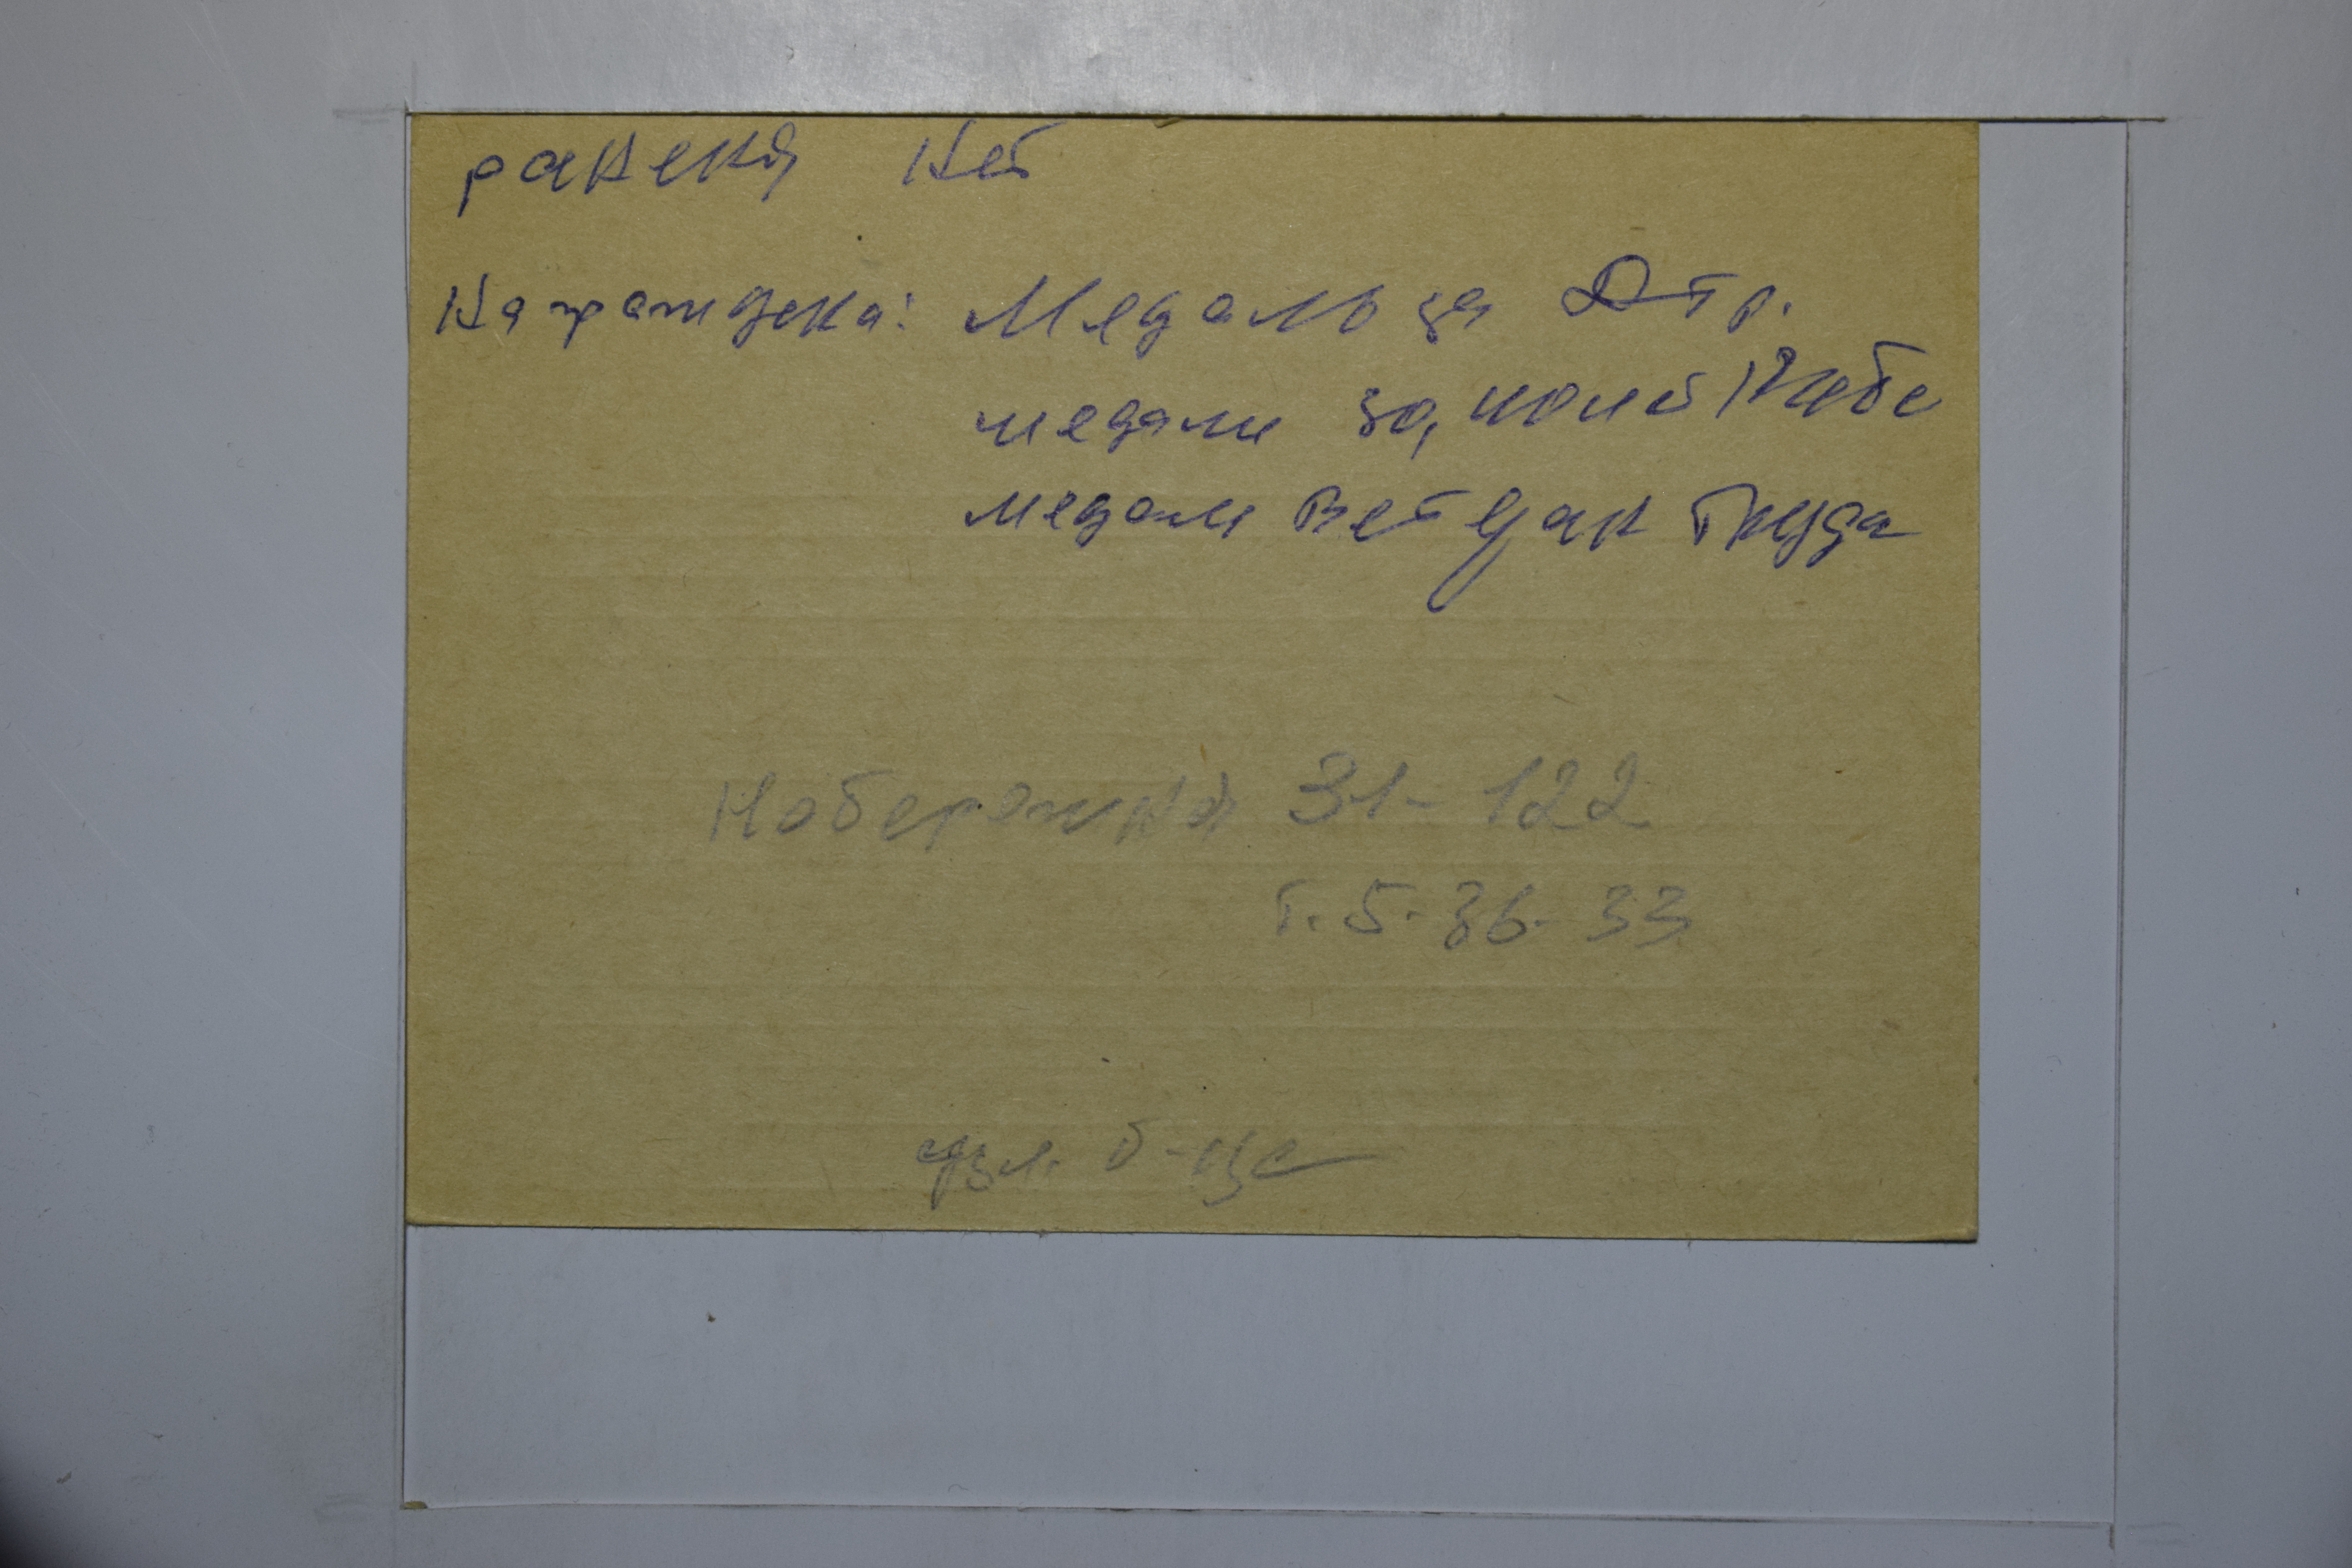 ранения нет
Награждена: Медаль за
медали за,
медали Ветеран Труда
Набережная 31-122
т. 5-36-33
б-ца